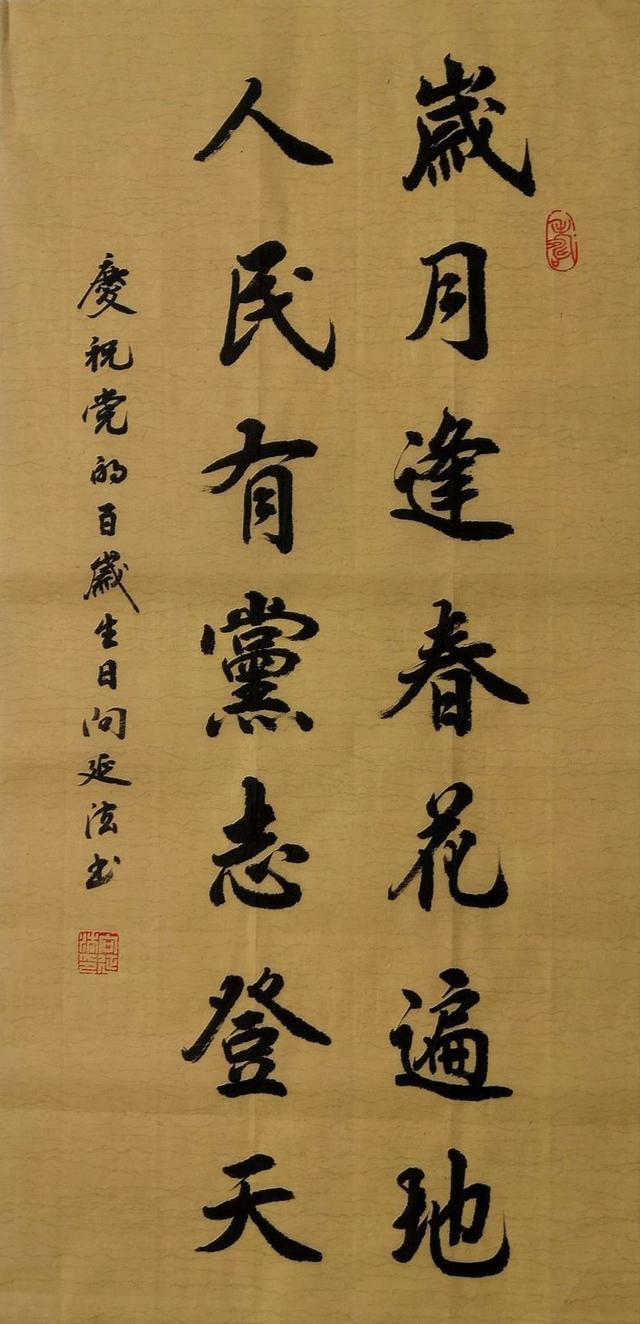 歲月逢春花遍地
人民有黨志登天
慶祝党的百歲生日向延法书